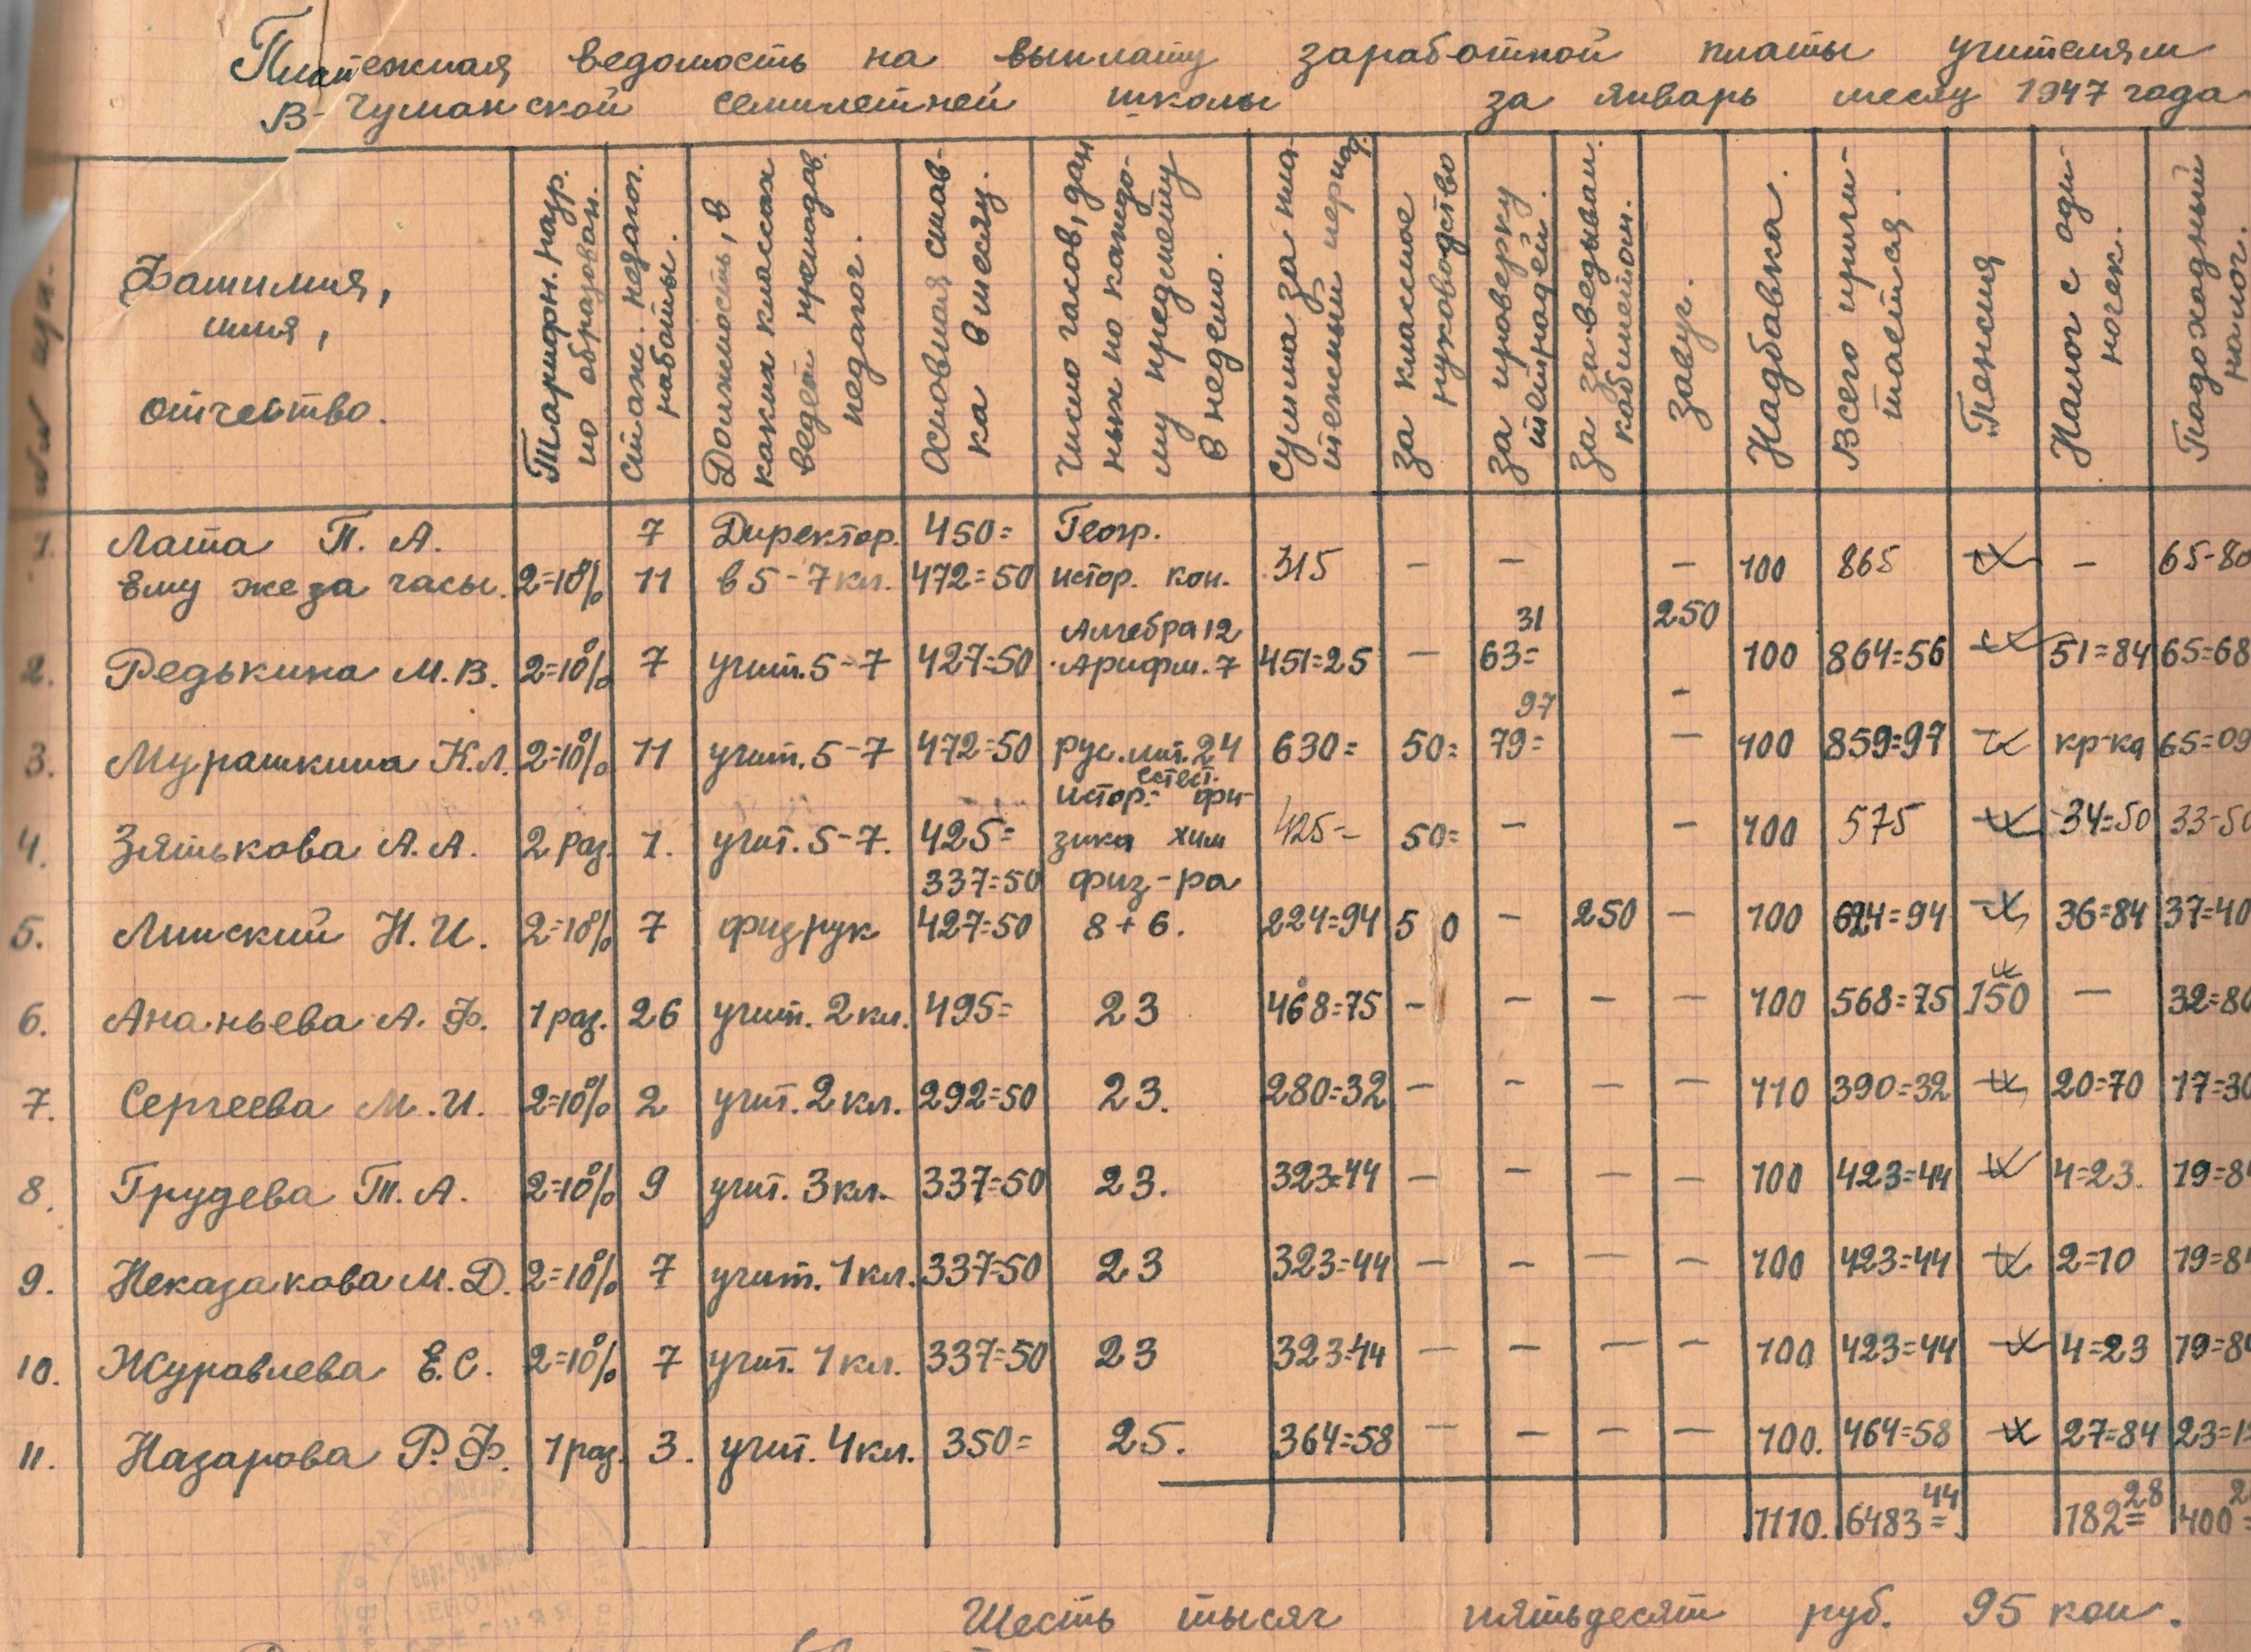 Платежная ведомость на выплату заработной платы учителям
В-Чуманской семилетней школы за январь месяц 1947 года
Фамилия, имя, отчество.
Тарифн. разр. по образован.
Стаж. педагог. работы.
Должность, в каких классах ведет преподав. педагог.
Основная став-ка в месяц.
Число часов, дан ных по каждо-му предмету в неделю.
Сумма за пла-тежный период.
За классное руководство
За проверку тетрадей.
За заведыван. кабинетом.
Завуч.
Надбавка.
Всего причи-тается.
Пенсия
Налог с оди-ночек.
Подоходный налог.
1. Лата П. А. 7 Директор. 450= Геогр.
Ему же за часы. 2=10% 11 в 5-7 кл. 472=50 истор. кон. 315 — — — 100 865 — 65-80
Алгебра 12 31 250
2. Редькина М.В. 2=10% 7 учит. 5-7 427=50 Арифм. 7 451=25 — 63= 100 864=56 51=84 65=68
97 —
3. Мурашкина К.Л. 2=10% 11 учит. 5-7 472=50 рус. лит. 24 630= 50= 79= — 100 859=97 кр-ка 65=09
естест.
истор.- фи-
4. Зятькова А.А. 2 раз. 1. учит. 5-7. 425= зика хим 425= 50= — — 100 575 34=50 33-50
337=50 физ-ра
5. Линский Н.И. 2=10% 7 физрук 427=50 8+6. 224=94 50 — 250 — 100 624=94 36=84 37=40
6. Ананьева А. Ф. 1 раз. 26 учит. 2 кл. 495= 23 468=75 — — — — 100 568=75 150 — 32=80
7. Сергеева М.И. 2=10% 2 учит. 2 кл. 292=50 23. 280=32 — — — — 110 390=32 20=70 17=30
8. Грудева Т.А. 2=10% 9 учит. 3 кл. 337=50 23. 323=44 — — — — 100 423=44 4=23. 19=84
9. Неказакова М.Д. 2=10% 7 учит. 1 кл. 337=50 23 323=44 — — — — 100 423=44 2=10 19=84
10. Журавлева Е.С. 2=10% 7 учит. 1 кл. 337=50 23 323=44 — — — — 100 423=44 4=23 19=84
11. Назарова Р.Ф. 1 раз. 3. учит. 4 кл. 350= 25. 364=58 — — — — 100. 464=58 27=84 23=1
1110. 6483=44 182=28 400=2
Шесть тысяч пятьдесят руб. 95 коп.